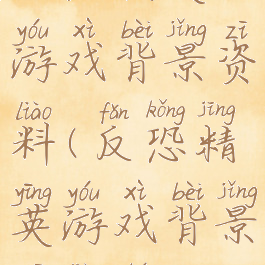 yóu xì bèi jǐng zī
游戏背景资
liào fǎn kǒng jīng
料(反恐精
yīng yóu xì bèi jǐng
英游戏背景